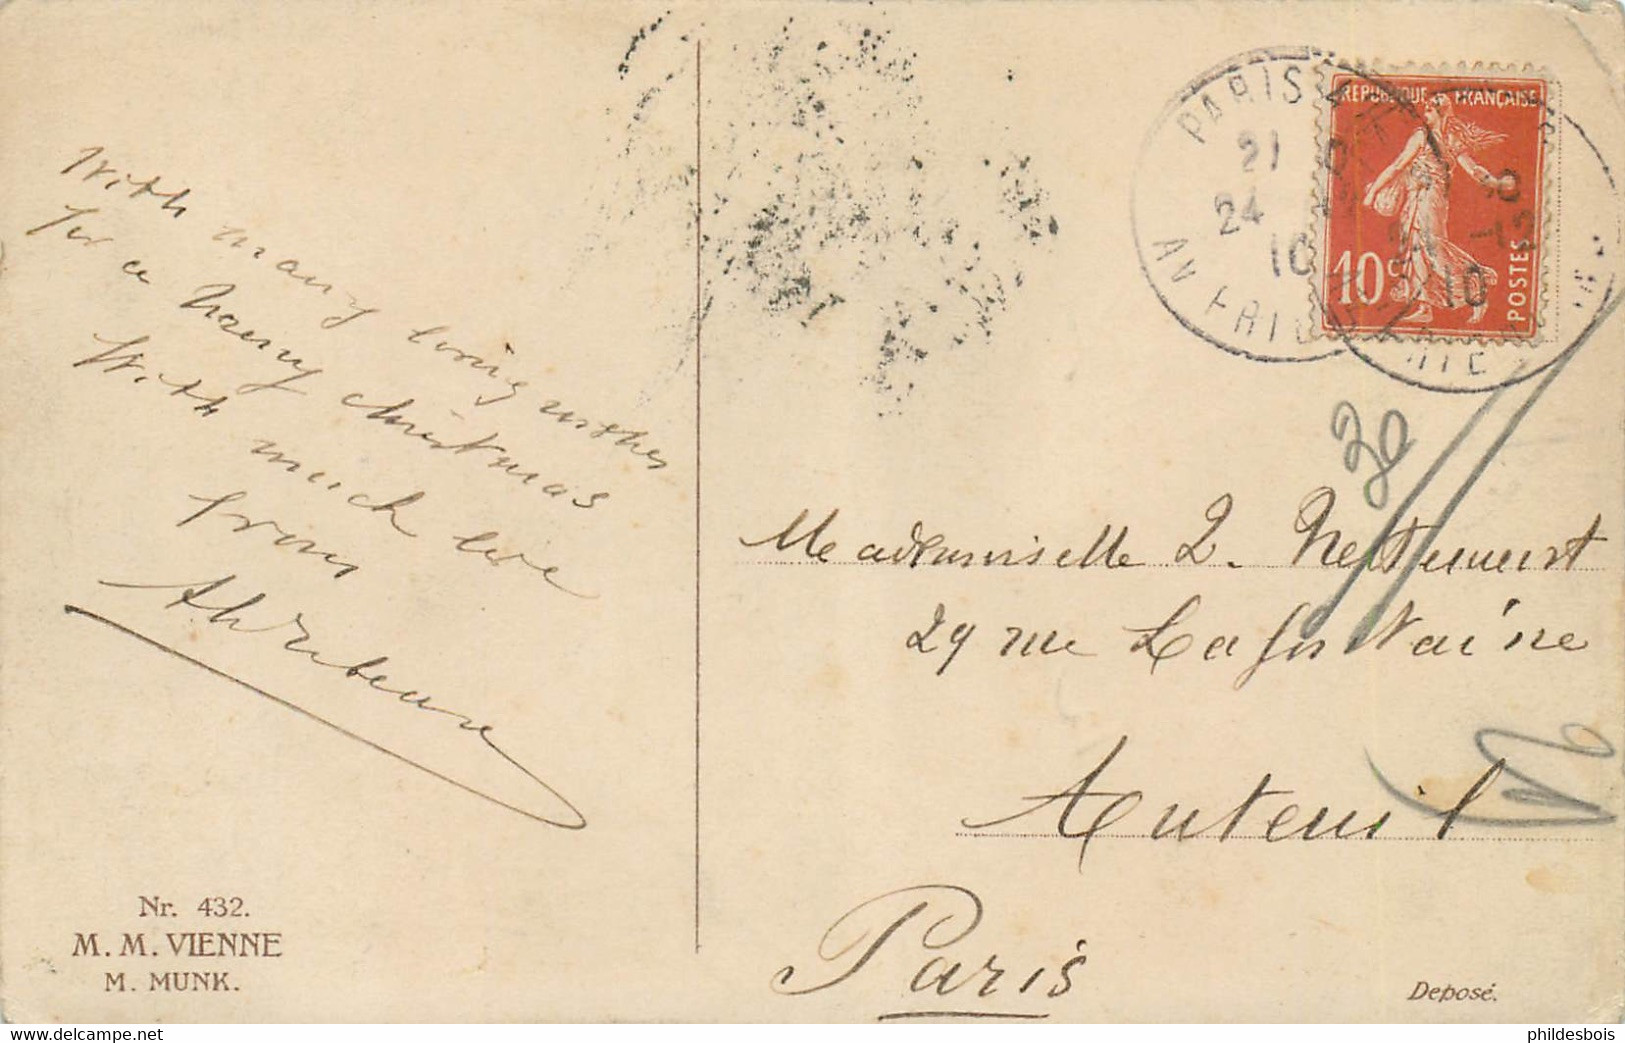 With many loving wishes
for a happy christmas
With much love
from
Nr. 432.
M. M. VIENNE
M. MUNK.
PARIS
21
24
10
AV
10
REPUBLIQUE FRANÇAISE
10c
POSTES
30
Mademoiselle
29 rue Lafontaine
Auteuil
Paris
Deposé.
phildesbois